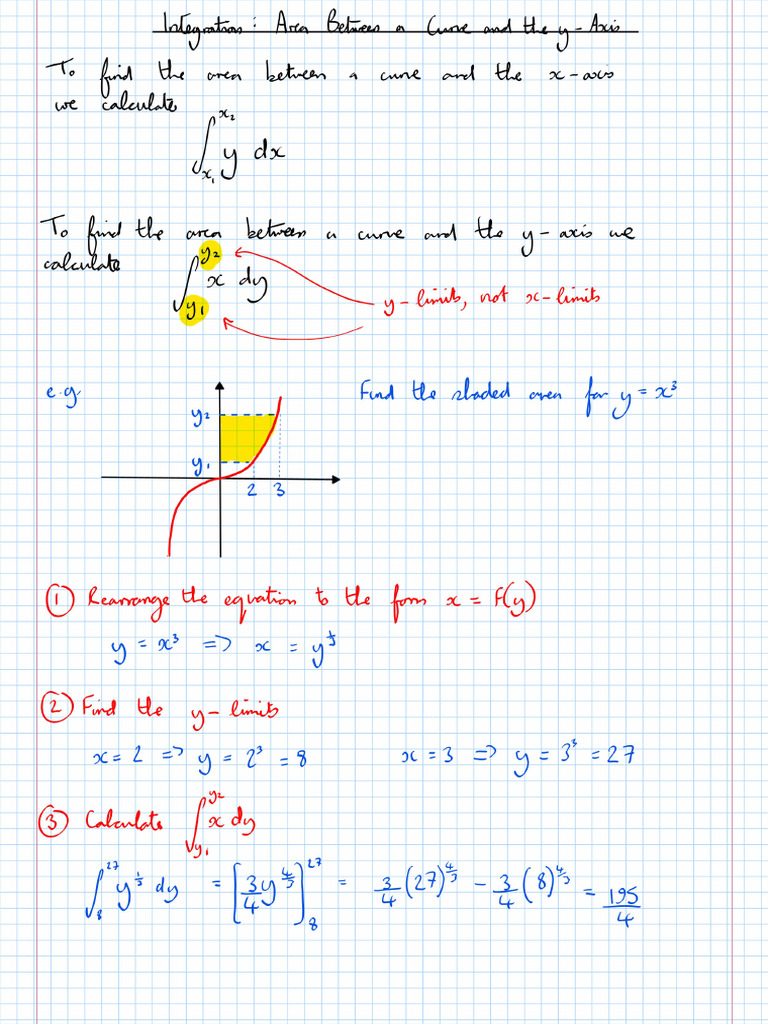 Integration: Area Between a Curve and the y-Axis
To find the area between a curve and the x-axis
we calculate
∫_{x₁}^{x₂} y dx
To find the area between a curve and the y-axis we
calculate
∫_{y₁}^{y₂} x dy
y-limits, not x-limits
e.g.
Find the shaded area for y = x³
y₂
y₁
2 3
① Rearrange the equation to the form x = f(y)
y = x³ => x = y^{1/3}
② Find the y-limits
x = 2 => y = 2³ = 8 x = 3 => y = 3³ = 27
③ Calculate ∫_{y₁}^{y₂} x dy
∫_{8}^{27} y^{1/3} dy = [3/4 y^{4/3}]_{8}^{27} = 3/4 (27)^{4/3} - 3/4 (8)^{4/3} = 195/4